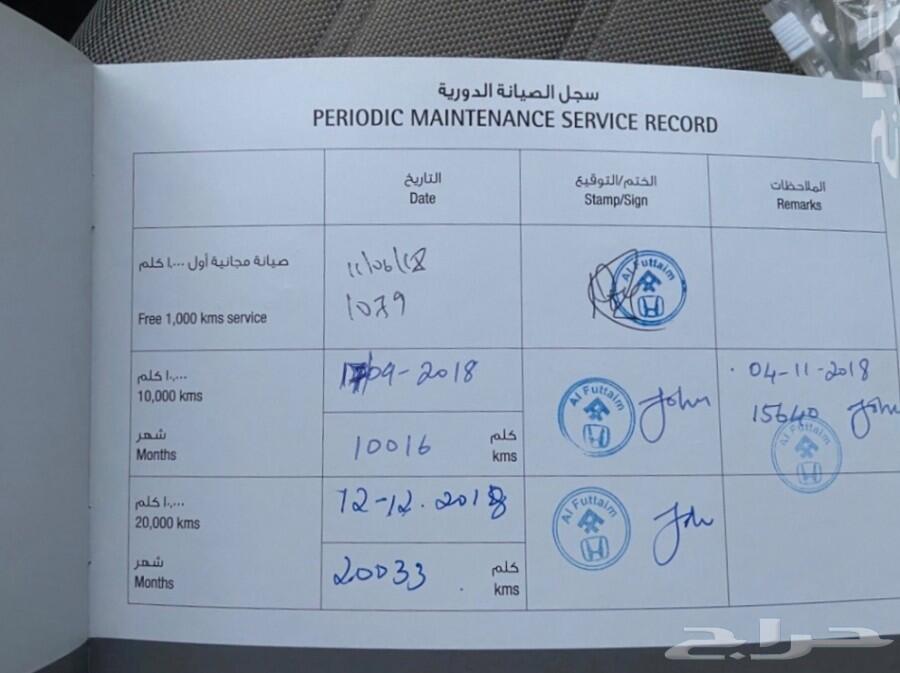 سجل الصيانة الدورية
PERIODIC MAINTENANCE SERVICE RECORD
التاريخ
Date
الختم/التوقيع
Stamp/Sign
الملاحظات
Remarks
صيانة مجانية أول ١,٠٠٠ كلم
Free 1,000 kms service
11/06/18
1079
Al Futtaim
١٠,٠٠٠ كلم
10,000 kms
09-2018
شهر
Months
10016
كلم
kms
Al Futtaim
John
04-11-2018
15640 John
Al Futtaim
٢٠,٠٠٠ كلم
20,000 kms
12-12.2018
شهر
Months
20033
كلم
kms
Al Futtaim
حراج